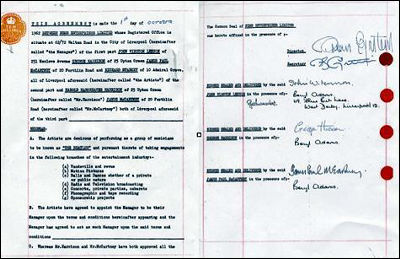 THIS AGREEMENT is made the 1st day of October
1962 BETWEEN NEMS ENTERPRISES LIMITED whose Registered Office is
situate at 12/14 Walton Road in the City of Liverpool (hereinafter
called "the Manager") of the first part JOHN WINSTON LENNON of
251 Menlove Avenue GEORGE HARRISON of 25 Upton Green JAMES PAUL
McCARTNEY of 20 Forthlin Road and RICHARD STARKEY of 10 Admiral Grove,
all of Liverpool aforesaid (hereinafter called "the Artists") of the
second part and HAROLD HARGREAVES HARRISON of 25 Upton Green
(hereinafter called "Mr.Harrison") JAMES McCARTNEY of 20 Forthlin
Road (hereinafter called "Mr.McCartney") both of Liverpool
aforesaid of the third part
WHEREAS:
A. The Artists are desirous of performing as a group of musicians
to be known as "THE BEATLES" and pursuant thereto of taking engagements
in the following branches of the entertainment industry:
Vaudeville and revue
Motion Pictures
Balls and Dances whether of a private
or public nature
Radio and Television broadcasting
Concerts, private parties, cabarets
Phonographic and tape recording
Sponsorship projects
B. The Artists have agreed to appoint the Manager to be their
Manager upon the terms and conditions hereinafter appearing and the
Manager has agreed to act as such Manager upon the said terms and
conditions
C. Whereas Mr.Harrison and Mr.McCartney have both approved all the
The Common Seal of NEMS ENTERPRISES LIMITED
was hereto affixed in presence of:-
Director.
Secretary.
SIGNED SEALED AND DELIVERED by the said
JOHN WINSTON LENNON in the presence of:-
John W Lennon
Beryl Adams.
West Derby, Liverpool 12.
SIGNED SEALED AND DELIVERED by the said
GEORGE HARRISON in the presence of:-
George Harrison
Beryl Adams.
SIGNED SEALED AND DELIVERED by the said
JAMES PAUL McCARTNEY in the presence of:-
James Paul McCartney
Beryl Adams.